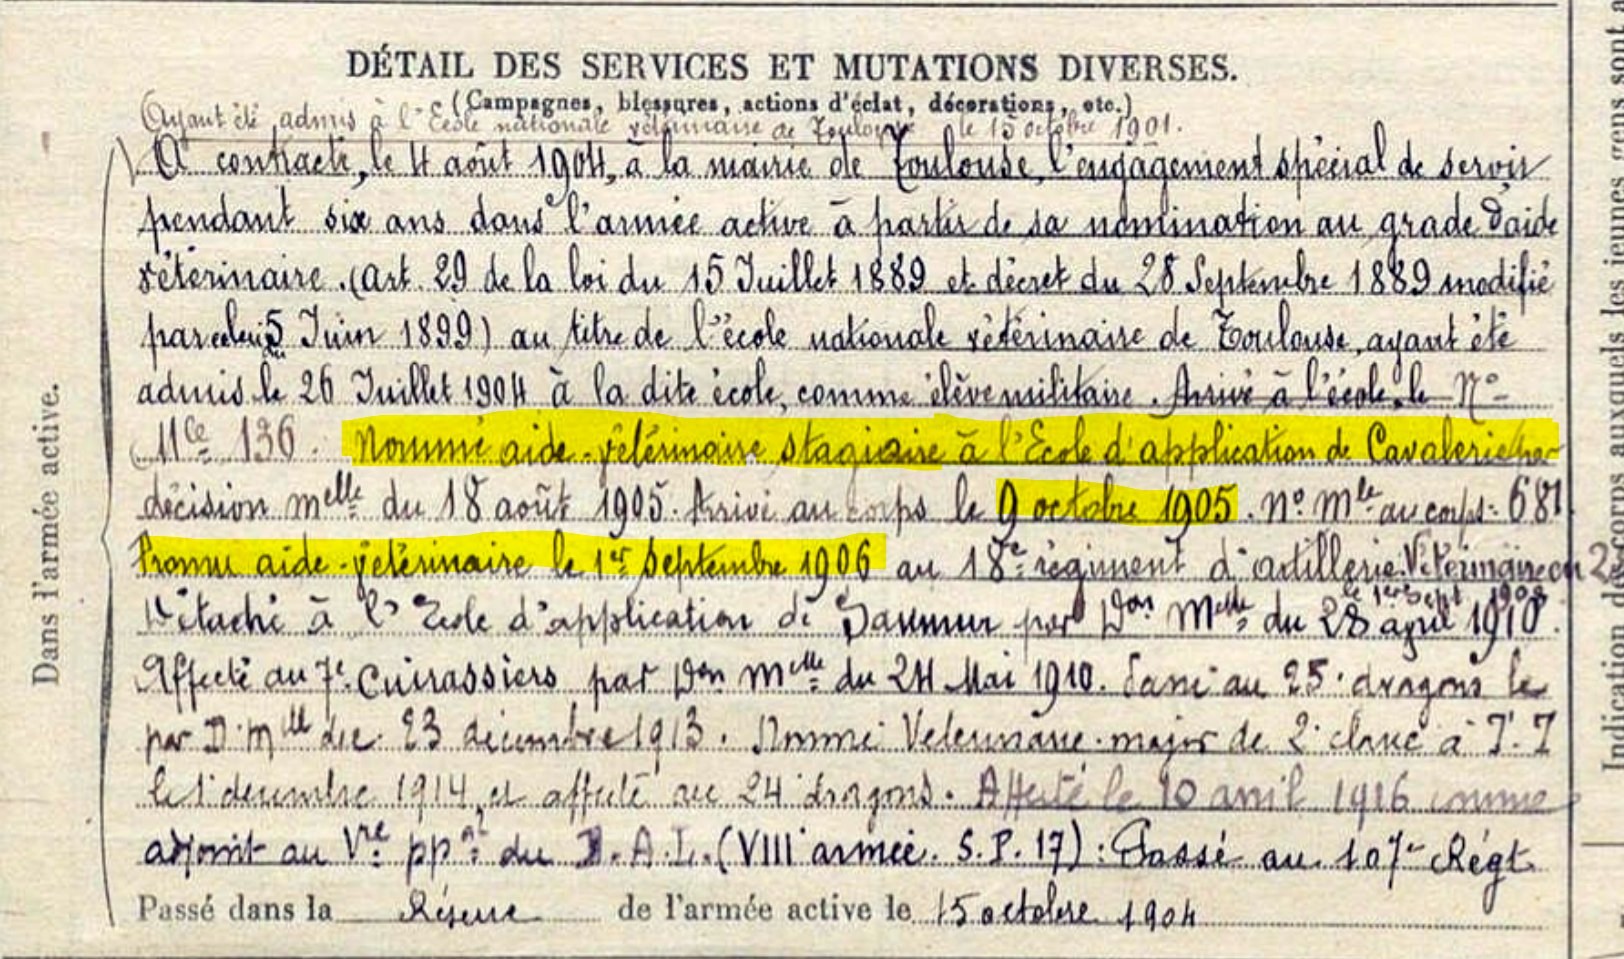 DÉTAIL DES SERVICES ET MUTATIONS DIVERSES.
(Campagnes, blessures, actions d'éclat, décorations, etc.)
Ayant été admis à l'École nationale vétérinaire de Toulouse le 15 octobre 1901.
A contracté, le 4 août 1904, à la mairie de Toulouse, l'engagement spécial de servir
pendant six ans dans l'armée active à partir de sa nomination au grade d'aide
vétérinaire. (art. 29 de la loi du 15 Juillet 1889 et décret du 28 Septembre 1889 modifié
par celui du 5 Juin 1899) au titre de l'école nationale vétérinaire de Toulouse, ayant été
admis le 26 Juillet 1904 à la dite école, comme élève militaire. Arrivé à l'école, le N°
Mce 136. Nommé aide-vétérinaire stagiaire à l'Ecole d'application de Cavalerie par
décision melle du 18 août 1905. Arrivé au corps le 9 octobre 1905. N° Mle au corps: 681
Promu aide-vétérinaire le 1er Septembre 1906 au 18e régiment d'artillerie. Vétérinaire en 2d
le 1er Sept 1908
Détaché à l'Ecole d'application de Saumur par Don Melle du 28 avril 1910.
Affecté au 7e Cuirassiers par Don melle du 24 Mai 1910. Passé au 25e dragons le
par D. mlle du 23 décembre 1913. Nommé Vétérinaire-major de 2e classe à T.T
le 1er décembre 1914 et affecté au 24e dragons. Affecté le 10 avril 1916 comme
adjoint au Vre ppal du D.A.L. (VIIIe armée. S.P. 17): Passé au 107e Régt
Passé dans la Réserve de l'armée active le 15 octobre 1904
Dans l'armée active.
Indication des corps auxquels les jeunes gens sont a